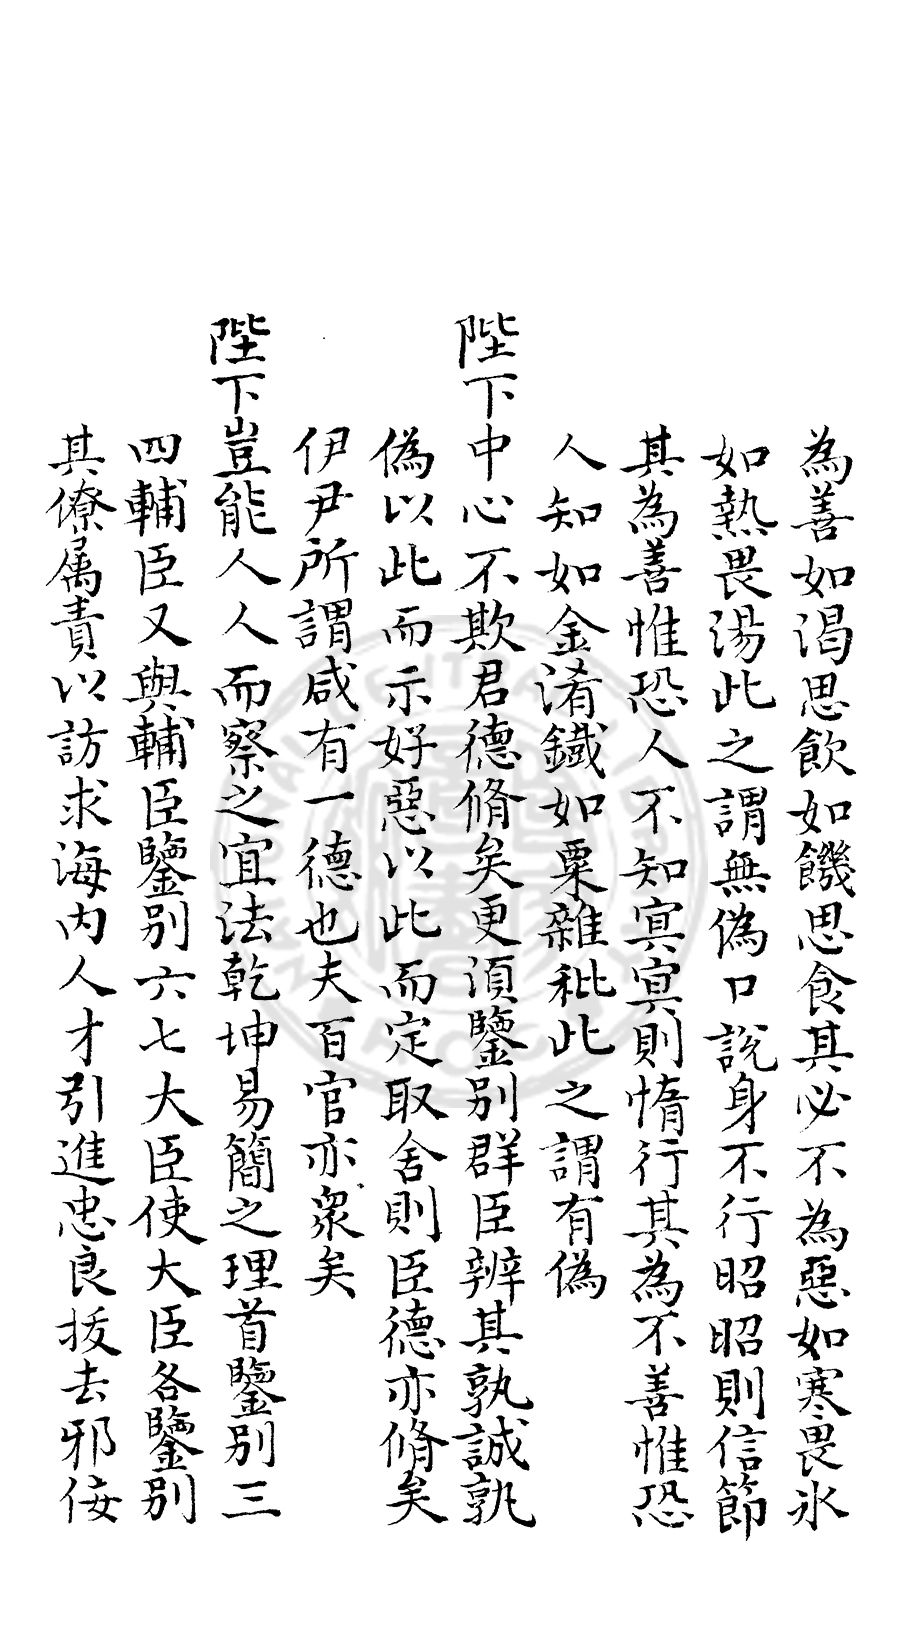 為善如渴思飲如饑思食其必不為惡如寒畏氷
如熱畏湯此之謂無偽口說身不行昭昭則信節
其為善惟恐人不知冥冥則惰行其為不善惟恐
人知如金淆鐵如粟雜秕此之謂有偽
陛下中心不欺君德脩矣更須鑒別群臣辨其孰誠孰
偽以此而示好惡以此而定取舍則臣德亦脩矣
伊尹所謂咸有一德也夫百官亦衆矣
陛下豈能人人而察之宜法乾坤易簡之理首鑒別三
四輔臣又與輔臣鑒別六七大臣使大臣各鑒別
其僚属責以訪求海内人才引進忠良拔去邪佞